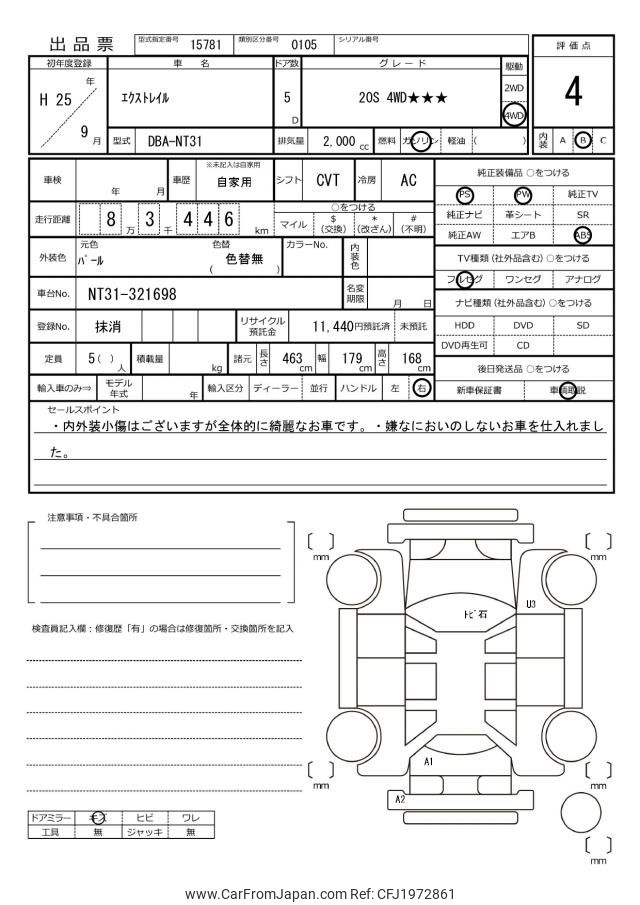 出品票 型式指定番号 15781 類別区分番号 0105 シリアル番号
評価点
4
内装 A B C
初年度登録 車名 ドア数 グレード 駆動
H 25 年 9 月
エクストレイル 5 D 20S 4WD★★★ 2WD 4WD
型式 DBA-NT31 排気量 2,000 cc 燃料 ガソリン 軽油 ( )
車検 年 月 車歴 ※未記入は自家用 自家用 シフト CVT 冷房 AC
走行距離 8 万 3 千 4 4 6 km
○をつける
マイル $ (交換) * (改ざん) # (不明)
外装色 元色 パール 色替 ( 色替無 ) カラーNo. 内装色
車台No. NT31-321698 名変期限 月 日
登録No. 抹消 リサイクル預託金 11,440円預託済 未預託
定員 5 ( ) 人 積載量 kg 諸元 長さ 463 cm 幅 179 cm 高さ 168 cm
輸入車のみ⇒ モデル年式 年 輸入区分 ディーラー 並行 ハンドル 左 右
純正装備品 ○をつける
PS PW 純正TV
純正ナビ 革シート SR
純正AW エアB ABS
TV種類 (社外品含む) ○をつける
フルセグ ワンセグ アナログ
ナビ種類 (社外品含む) ○をつける
HDD DVD SD
DVD再生可 CD
後日発送品 ○をつける
新車保証書 車輌取説
セールスポイント
・内外装小傷はございますが全体的に綺麗なお車です。・嫌なにおいのしないお車を仕入れまし
た。
注意事項・不具合箇所
検査員記入欄：修復歴「有」の場合は修復箇所・交換箇所を記入
ドアミラー キズ ヒビ ワレ
工具 無 ジャッキ 無
mm
mm
U3
トビ石
A1
mm
mm
A2
mm
www.CarFromJapan.com Ref: CFJ1972861